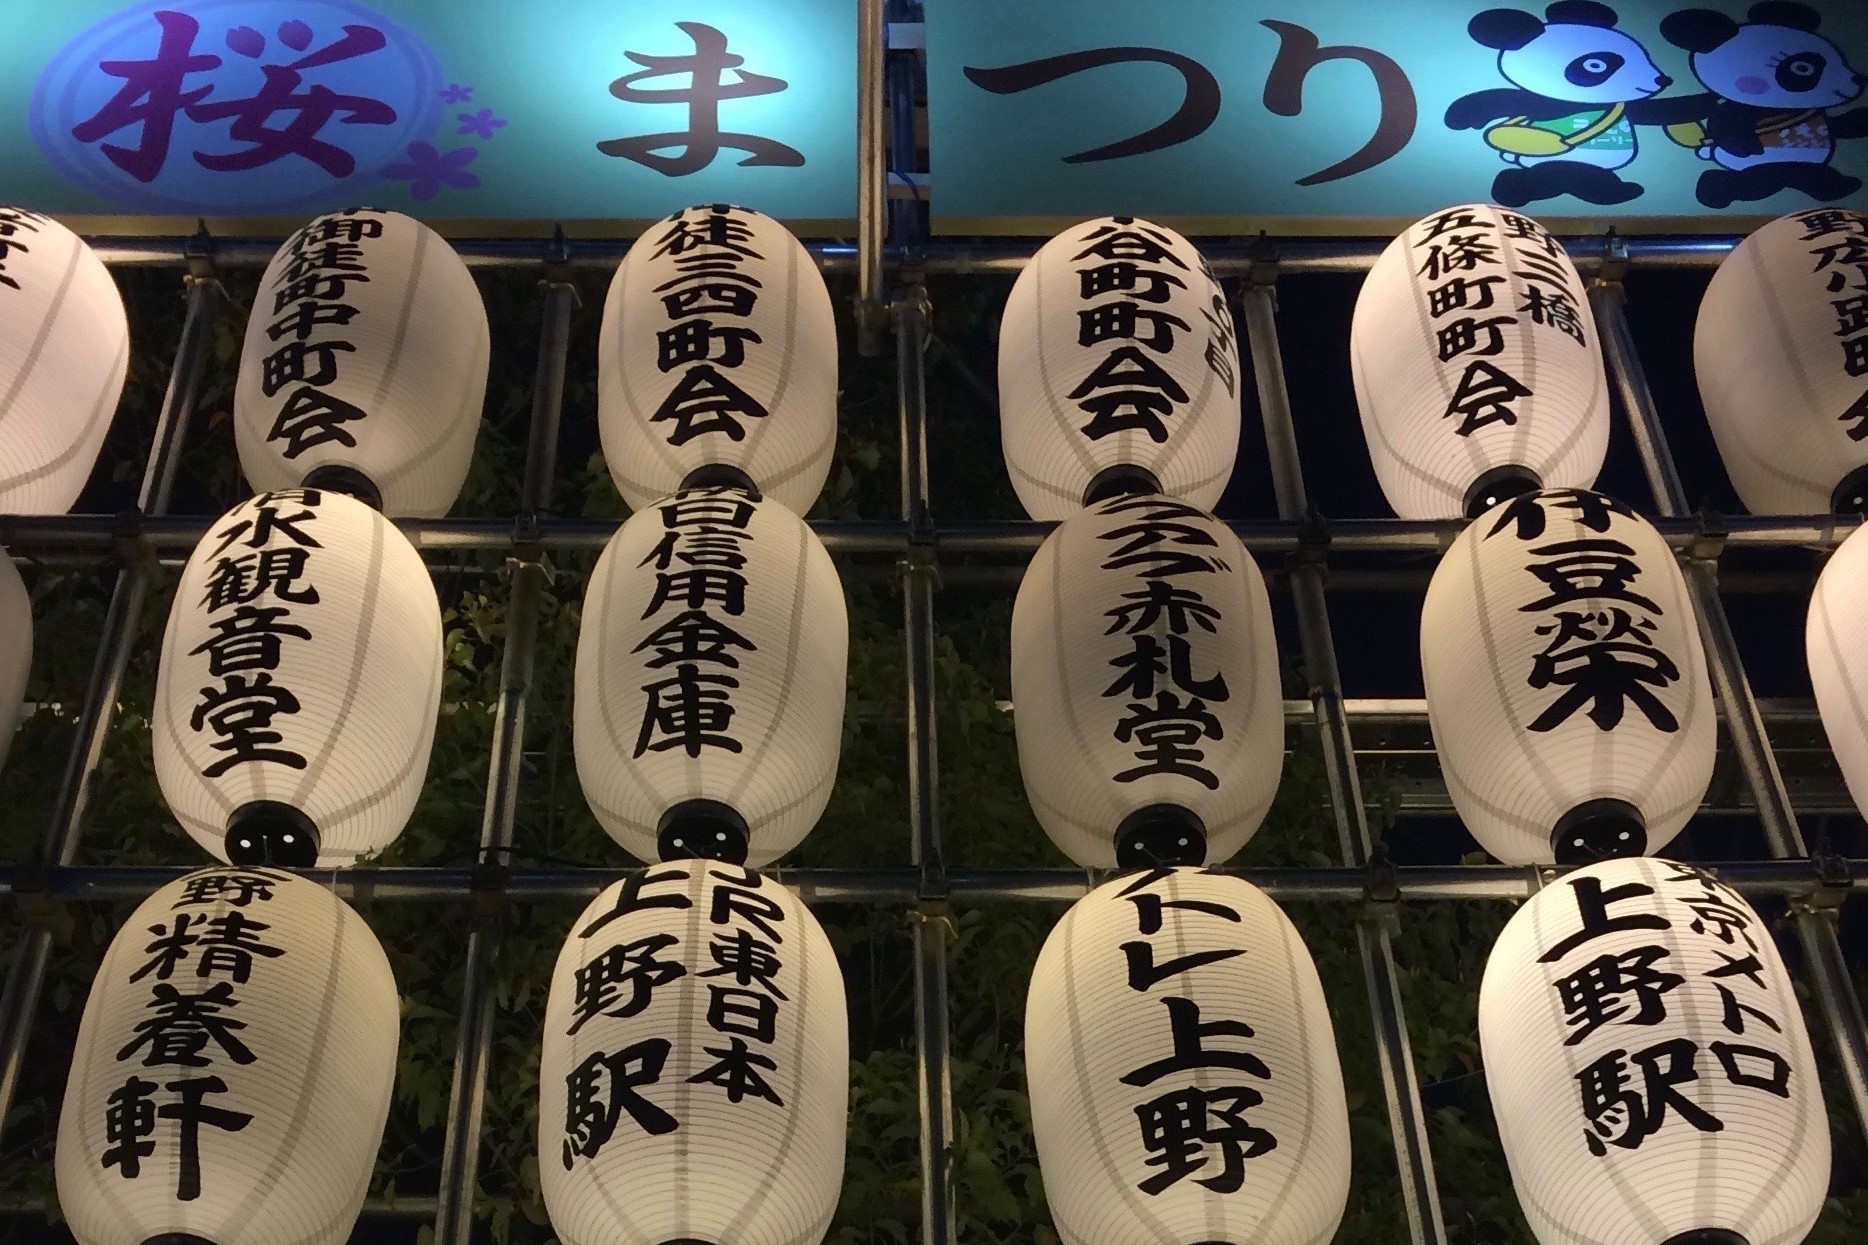 桜まつり
御徒町中町会
徒三四町会
谷町町会
野三橋
五條町町会
水観音堂
信用金庫
赤札堂
伊豆榮
野精養軒
JR東日本
上野駅
アトレ上野
東京メトロ
上野駅